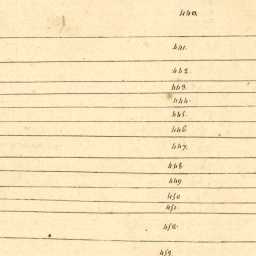 440
441.
442.
443.
444.
445.
446
447.
448
449
450
451.
452.
453